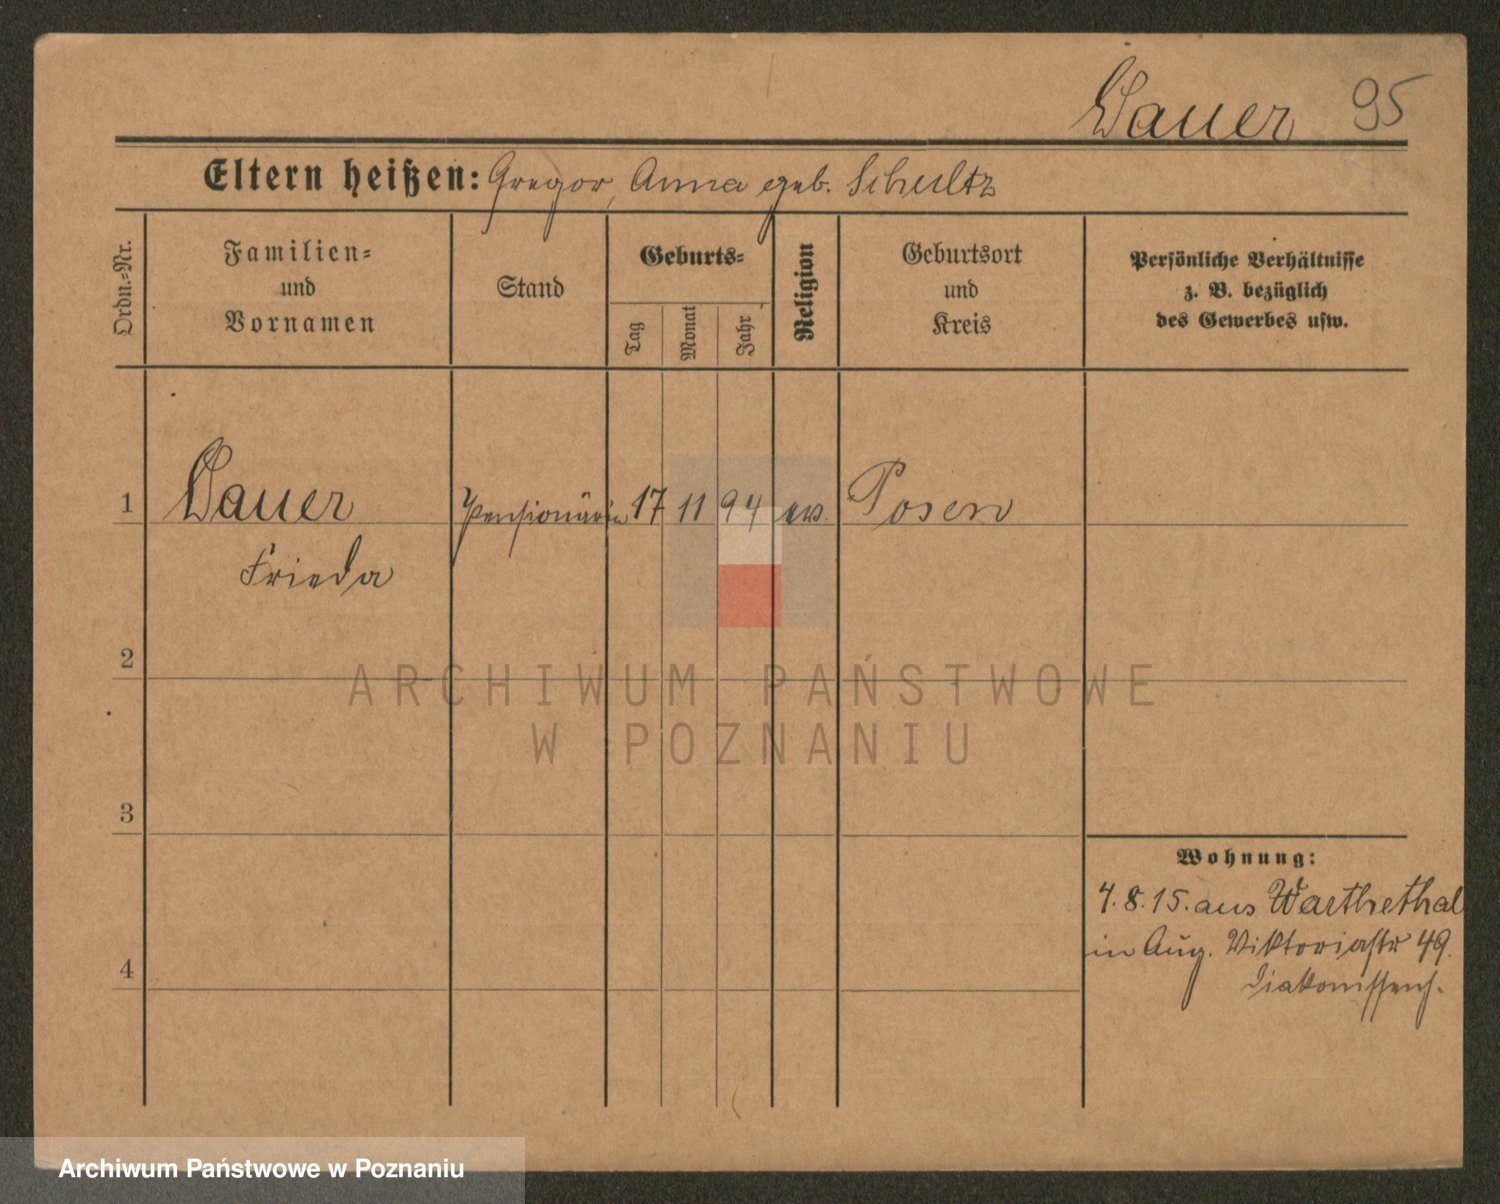 Dauer 95
Eltern heißen: Gregor, Anna geb. Schultz
Ordn.-Nr.
Familien-
und
Vornamen
Stand
Geburts-
Tag
Monat
Jahr
Religion
Geburtsort
und
Kreis
Persönliche Verhältnisse
z. B. bezüglich
des Gewerbes usw.
1 Dauer Pensionärin 17 11 94 ev. Posen
Frieda
2
3
4
Wohnung:
4.8.15. aus Warthethal
in Aug. Viktoriastr 49.
Diakonissenh.
ARCHIWUM PAŃSTWOWE
W POZNANIU
Archiwum Państwowe w Poznaniu